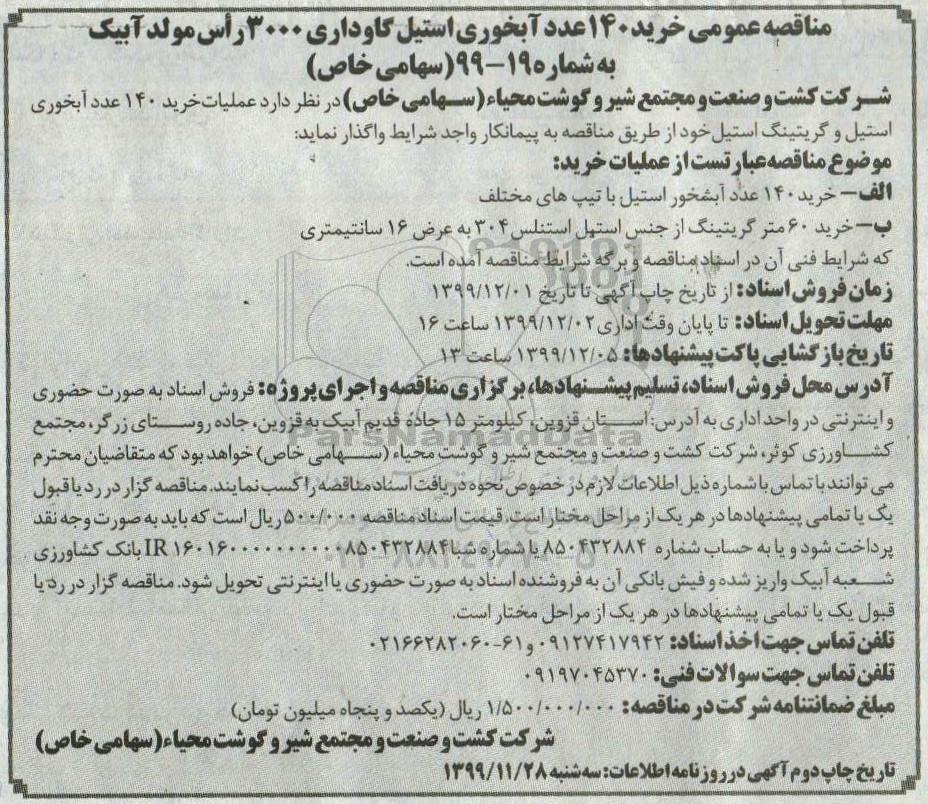 مناقصه عمومی خرید ۱۴۰ عدد آبخوری استیل گاوداری ۳۰۰۰ رأس مولد آبیک
به شماره ۱۹-۹۹ (سهامی خاص)
شرکت کشت و صنعت و مجتمع شیر و گوشت محیاء (سهامی خاص) در نظر دارد عملیات خرید ۱۴۰ عدد آبخوری
استیل و گریتینگ استیل خود از طریق مناقصه به پیمانکار واجد شرایط واگذار نماید:
موضوع مناقصه عبارتست از عملیات خرید:
الف- خرید ۱۴۰ عدد آبشخور استیل با تیپ های مختلف
ب- خرید ۶۰ متر گریتینگ از جنس استهل استنلس ۳۰۴ به عرض ۱۶ سانتیمتری
که شرایط فنی آن در اسناد مناقصه و برگه شرایط مناقصه آمده است.
زمان فروش اسناد: از تاریخ چاپ آگهی تا تاریخ ۱۳۹۹/۱۲/۰۱
مهلت تحویل اسناد: تا پایان وقت اداری ۱۳۹۹/۱۲/۰۲ ساعت ۱۶
تاریخ بازگشایی پاکت پیشنهادها: ۱۳۹۹/۱۲/۰۵ ساعت ۱۳
آدرس محل فروش اسناد، تسلیم پیشنهادها، برگزاری مناقصه و اجرای پروژه: فروش اسناد به صورت حضوری
و اینترنتی در واحد اداری به آدرس: استان قزوین، کیلومتر ۱۵ جاده قدیم آبیک به قزوین، جاده روستای زرگر، مجتمع
کشاورزی کوثر، شرکت کشت و صنعت و مجتمع شیر و گوشت محیاء (سهامی خاص) خواهد بود که متقاضیان محترم
می توانند با تماس با شماره ذیل اطلاعات لازم در خصوص نحوه دریافت اسناد مناقصه را کسب نمایند. مناقصه گزار در رد یا قبول
یک یا تمامی پیشنهادها در هر یک از مراحل مختار است. قیمت اسناد مناقصه ۵۰۰/۰۰۰ ریال است که باید به صورت وجه نقد
پرداخت شود و یا به حساب شماره ۸۵۰۴۳۲۸۸۴ یا شماره شبا IR ۱۶۰۱۶۰۰۰۰۰۰۰۰۰۰۰۸۵۰۴۳۲۸۸۴ بانک کشاورزی
شعبه آبیک واریز شده و فیش بانکی آن به فروشنده اسناد به صورت حضوری یا اینترنتی تحویل شود. مناقصه گزار در رد یا
قبول یک یا تمامی پیشنهادها در هر یک از مراحل مختار است.
تلفن تماس جهت اخذ اسناد: ۰۹۱۲۷۴۱۷۹۴۲ و ۶۱-۰۲۱۶۶۲۸۲۰۶۰
تلفن تماس جهت سوالات فنی: ۰۹۱۹۷۰۴۵۳۷۰
مبلغ ضمانتنامه شرکت در مناقصه: ۱/۵۰۰/۰۰۰/۰۰۰ ریال (یکصد و پنجاه میلیون تومان)
شرکت کشت و صنعت و مجتمع شیر و گوشت محیاء (سهامی خاص)
تاریخ چاپ دوم آگهی در روزنامه اطلاعات: سه شنبه ۱۳۹۹/۱۱/۲۸
ParsNamadData